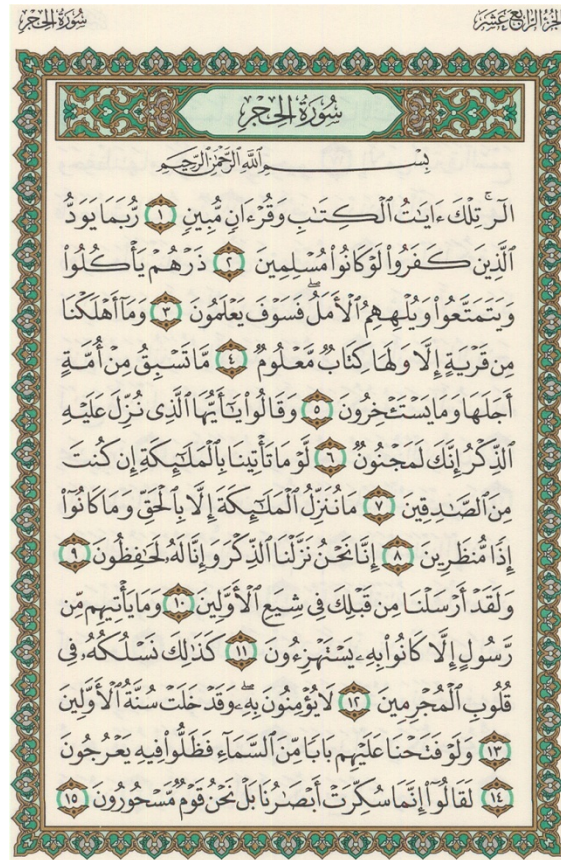 سُورَةُ الحِجْرِ
الجُزْءُ الرَّابِعَ عَشَرَ
سُورَةُ الحِجْرِ
بِسْمِ اللَّهِ الرَّحْمَٰنِ الرَّحِيمِ
الٓرۚ تِلْكَ ءَايَٰتُ ٱلْكِتَٰبِ وَقُرْءَانٍ مُّبِينٍ ١ رُّبَمَا يَوَدُّ
ٱلَّذِينَ كَفَرُواْ لَوْ كَانُواْ مُسْلِمِينَ ٢ ذَرْهُمْ يَأْكُلُواْ
وَيَتَمَتَّعُواْ وَيُلْهِهِمُ ٱلْأَمَلُۖ فَسَوْفَ يَعْلَمُونَ ٣ وَمَآ أَهْلَكْنَا
مِن قَرْيَةٍ إِلَّا وَلَهَا كِتَابٌ مَّعْلُومٌ ٤ مَّا تَسْبِقُ مِنْ أُمَّةٍ
أَجَلَهَا وَمَا يَسْتَـْٔخِرُونَ ٥ وَقَالُواْ يَٰٓأَيُّهَا ٱلَّذِى نُزِّلَ عَلَيْهِ
ٱلذِّكْرُ إِنَّكَ لَمَجْنُونٌ ٦ لَّوْ مَا تَأْتِينَا بِٱلْمَلَٰٓئِكَةِ إِن كُنتَ
مِنَ ٱلصَّٰدِقِينَ ٧ مَا نُنَزِّلُ ٱلْمَلَٰٓئِكَةَ إِلَّا بِٱلْحَقِّ وَمَا كَانُوٓاْ
إِذًا مُّنظَرِينَ ٨ إِنَّا نَحْنُ نَزَّلْنَا ٱلذِّكْرَ وَإِنَّا لَهُۥ لَحَٰفِظُونَ ٩
وَلَقَدْ أَرْسَلْنَا مِن قَبْلِكَ فِى شِيَعِ ٱلْأَوَّلِينَ ١٠ وَمَا يَأْتِيهِم مِّن
رَّسُولٍ إِلَّا كَانُواْ بِهِۦ يَسْتَهْزِءُونَ ١١ كَذَٰلِكَ نَسْلُكُهُۥ فِى
قُلُوبِ ٱلْمُجْرِمِينَ ١٢ لَا يُؤْمِنُونَ بِهِۦۖ وَقَدْ خَلَتْ سُنَّةُ ٱلْأَوَّلِينَ
١٣ وَلَوْ فَتَحْنَا عَلَيْهِم بَابًا مِّنَ ٱلسَّمَآءِ فَظَلُّواْ فِيهِ يَعْرُجُونَ
١٤ لَقَالُوٓاْ إِنَّمَا سُكِّرَتْ أَبْصَٰرُنَا بَلْ نَحْنُ قَوْمٌ مَّسْحُورُونَ ١٥